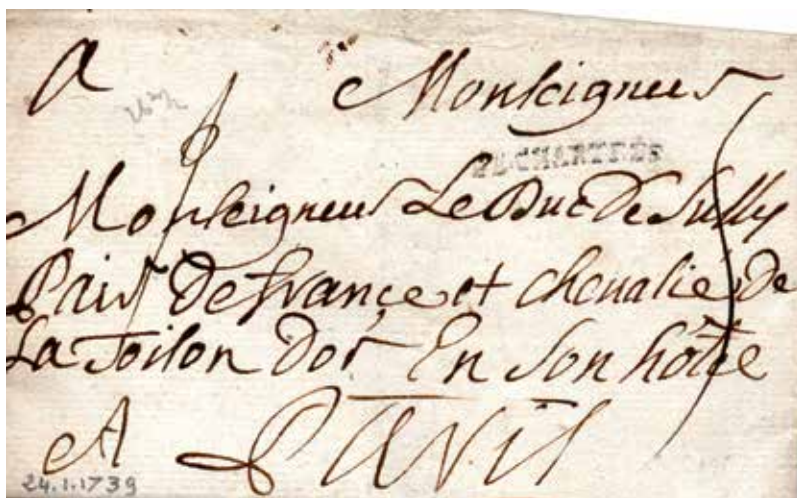 A Monseigneur
DE CHARTRES
Monseigneur Le Duc De Sully
Pair De france et chevalié de
La Toison Dor En Son hôtel
A PARIS
24.1.1739